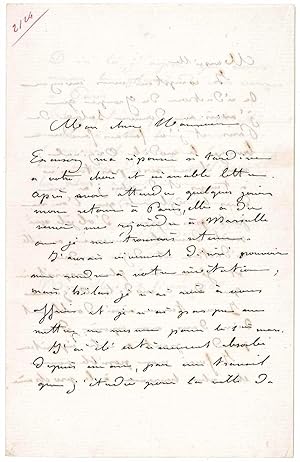 2124
Mon cher Monsieur
Excusez ma réponse si tardive
à votre chère et aimable lettre.
Après avoir attendu quelques jours
mon retour à Paris, elle a dû
me rejoindre à Marseille
où je me trouvais retenu.
J'aurais vivement désiré pouvoir
me rendre à votre invitation,
mais hélas je n'ai rien à vous
offrir et je n'ai pas pu me
mettre en mesure pour le
J'ai été entièrement absorbé
depuis un an, par un travail
que j'étudie pour la ville de